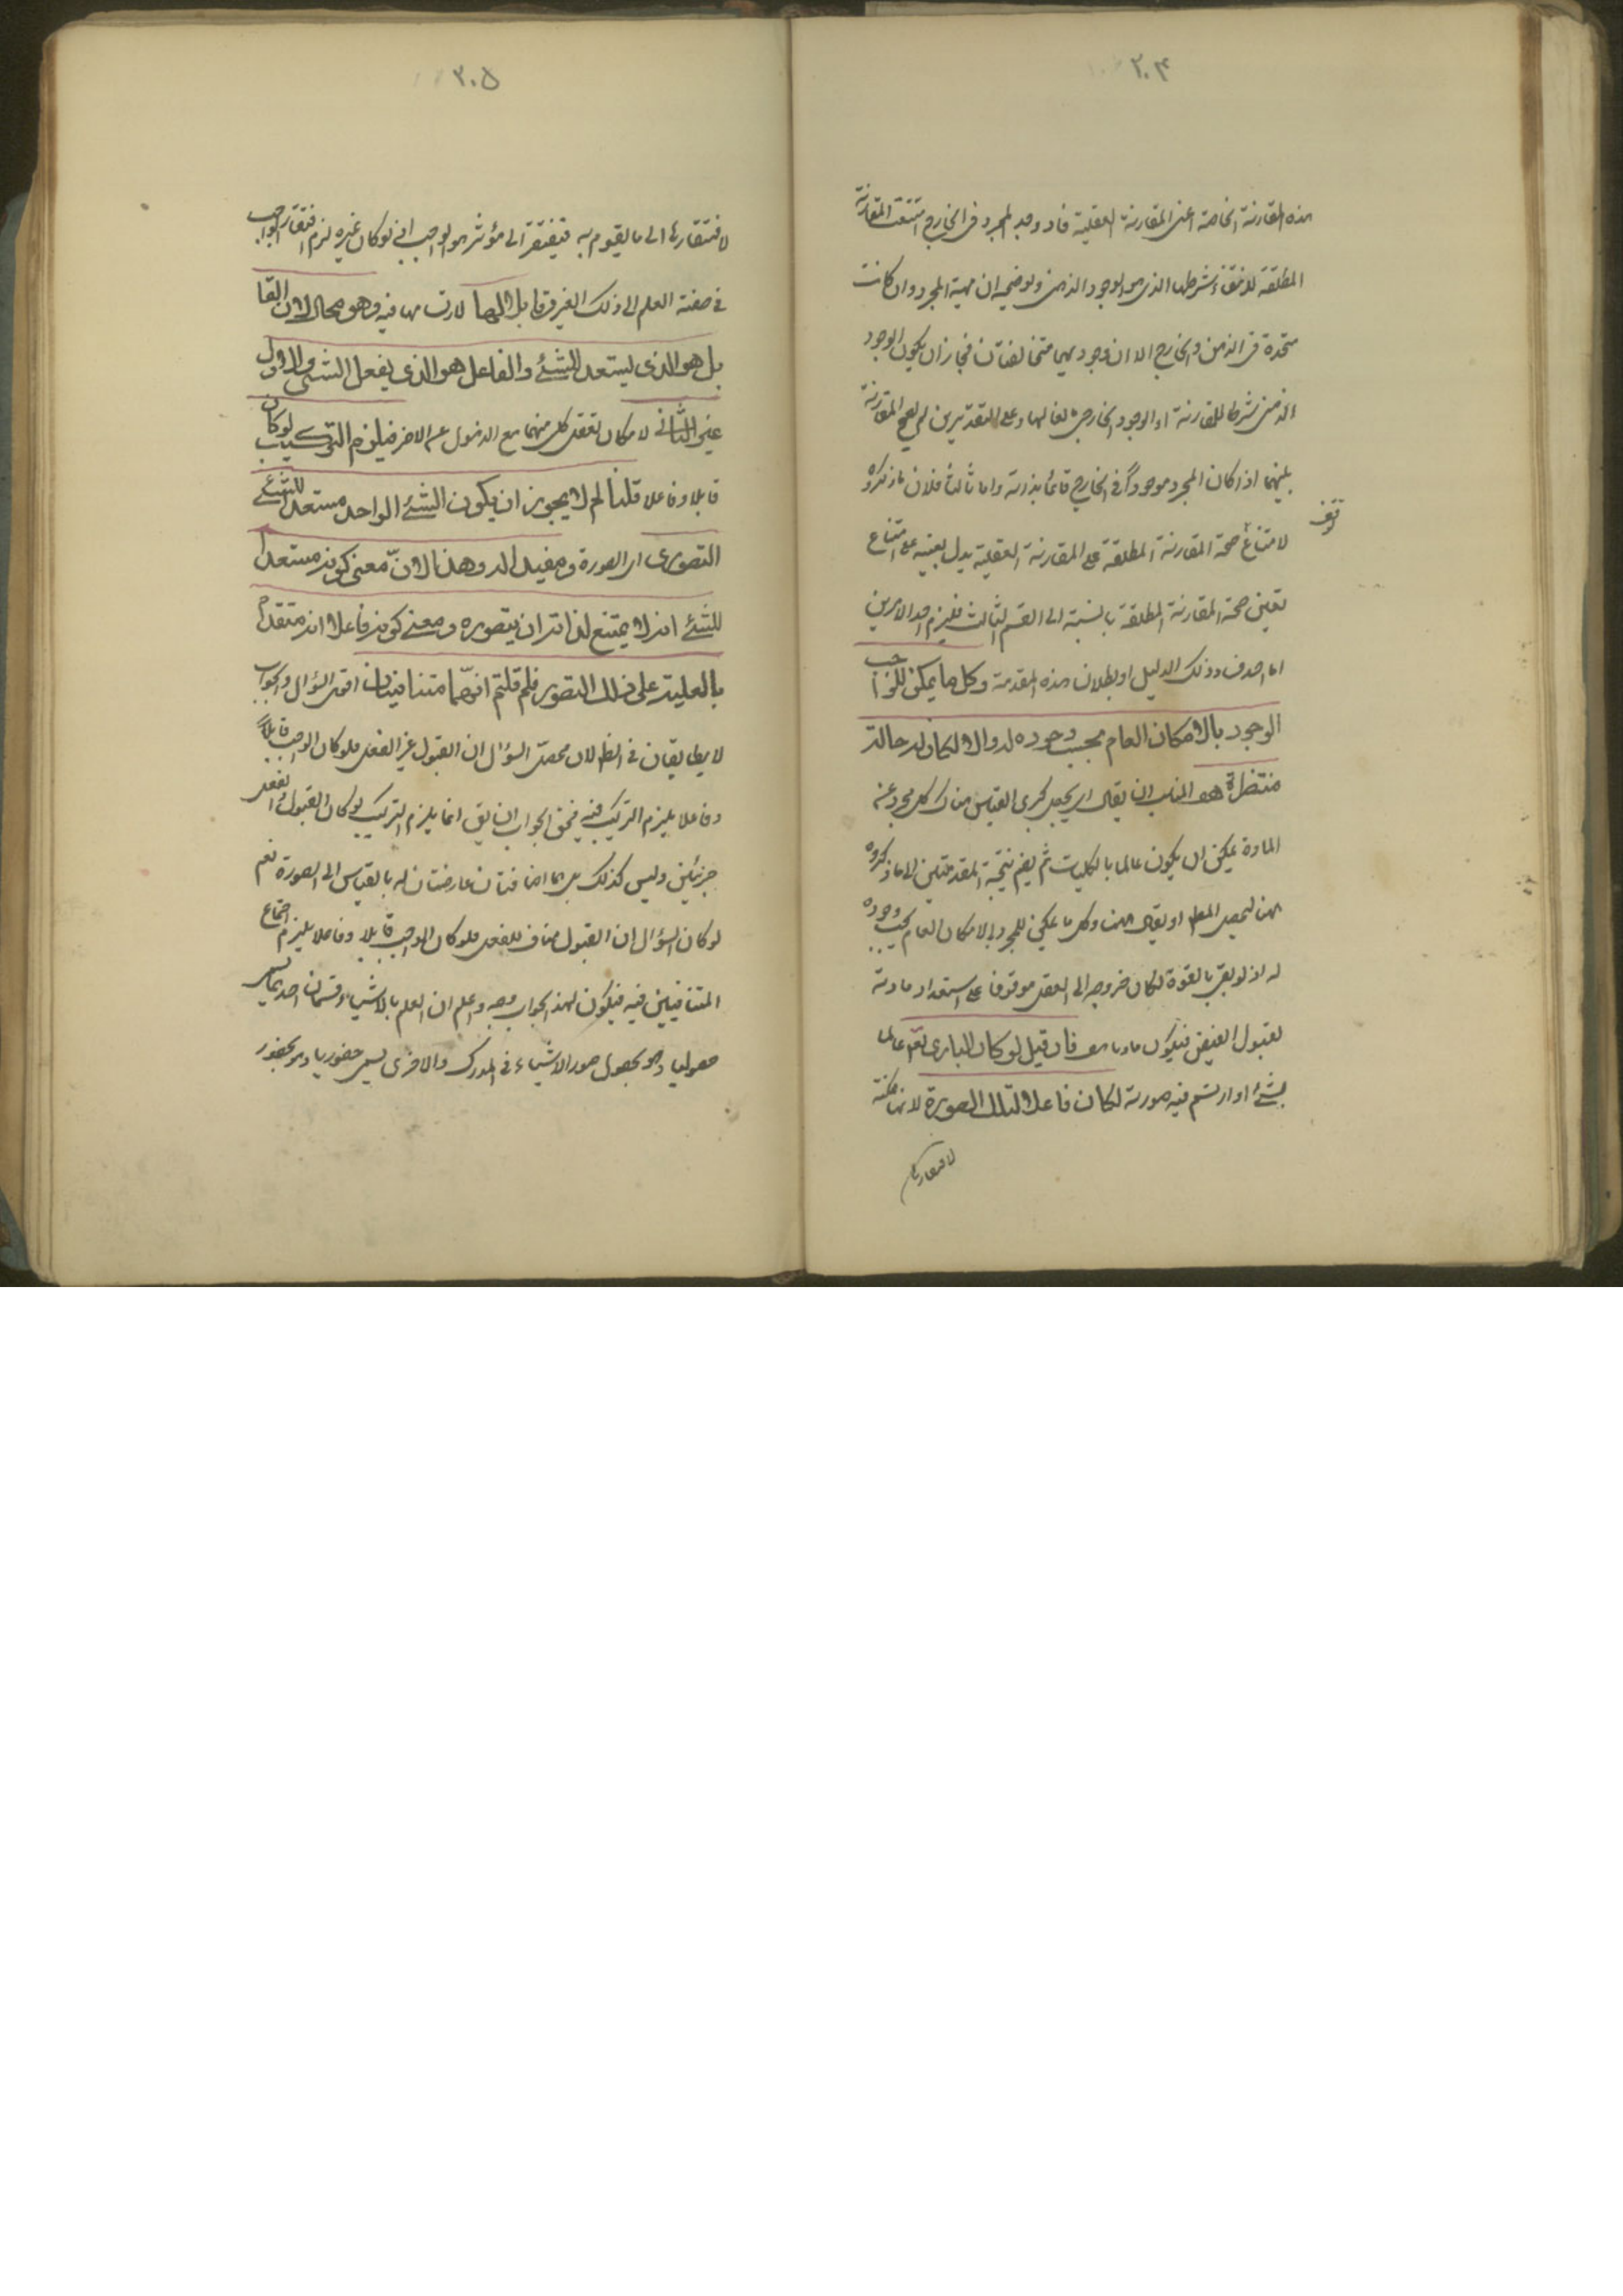 ٢٠٤
هذه المقارنة الخاصة اعنى المقارنة العقلية فاذا وجد المجرد فى الخارج امتنعت المقارنة
المطلقة لانتفاء شرطها الذى هو الوجود الذهنى وتوضيحه ان مهية المجرد وان كانت
متحدة فى الذهن والخارج الا ان وجوديهما متخالفان فجاز ان يكون الوجود
الذهنى شرطا للمقارنة او الوجود الخارجى مانعا لها وعلى التقديرين لم يصح المقارنة
بينهما اذا كان المجرد موجوداً فى الخارج قائما بذاته واما ثالثا فلان ما ذكروه
لامتناع صحة المقارنة المطلقة على المقارنة العقلية يدل بعينه على امتناع
توقف
تعين صحة المقارنة المطلقة بالنسبة الى القسم الثالث فيلزم احد الامرين
اما صدق وذلك الدليل او بطلان هذه المقدمة وكل ما يمكن للواجب
الوجود بالامكان العام يجب وجوده له والا لكان له حالة
منتظرة هف المناسب ان يقال اى يجعل كبرى القياس هناك كل مجرد عن
المادة يمكن ان يكون عالما بالكليات ثم يضم نتيجة المقدمتين الى ما ذكروه
هنا ليحصل المطلوب او يقال ههنا وكل ما يمكن للمجرد بالامكان العام يجب وجوده
له اذ لو بقى بالقوة لكان خروجه الى الفعل موقوفا على استعداد مادته
لقبول الفيض فيكون ماديا هف فان قيل لو كان البارى تعالى عالما
بشئ او ارتسم فيه صورته لكان فاعلا لتلك الصورة لانها ممكنة
لافتقارها
٢٠٥
لافتقارها الى ما يقوم به فيفتقر الى مؤثر هو الواجب اذ لو كان غيره لزم افتقار الواجب
فى صفة العلم الى ذلك الغير وقابلا لها لارتسامها فيه وهو محال لان القا
بل هو الذى يستعد للشئ والفاعل هو الذى يفعل الشئ والاول
غير الثانى لامكان تعقل كل منهما مع الذهول عن الاخر فيلزم التركيب لو كان
قابلا وفاعلا قلنا لم لا يجوز ان يكون الشئ الواحد مستعدا للشئ
التصورى اى الصورة ومفيدا له وهذا لان معنى كونه مستعدا
للشئ انه لا يمتنع لذاته ان يتصوره ومعنى كونه فاعلا انه متقدم
بالعلية على ذلك التصور فلم قلتم انهما متنافيان اقول السؤال والجواب
لا يطابقان فى الظ لان محصل السؤال ان القبول غير الفعل فلو كان الواجب قابلاً
وفاعلا يلزم التركيب فيه فحق الجواب ان يق انما يلزم التركيب لو كان القبول والفعل
جزئين وليس كذلك بل هما اضافتان عارضتان له بالقياس الى الصورة نعم
لو كان السؤال ان القبول مناف للفعل فلو كان الواجب قابلا وفاعلا يلزم اجتماع
المتنافيين فيه فيكون لهذا الجواب وجه واعلم ان العلم بالاشياء قسمان احدهما يسمى
حصوليا وهو بحصول صور الاشياء فى المدرك والاخرى يسمى حضوريا وهو بحضور